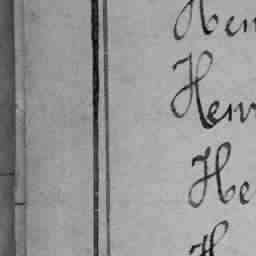 Hen
Henr
He
H